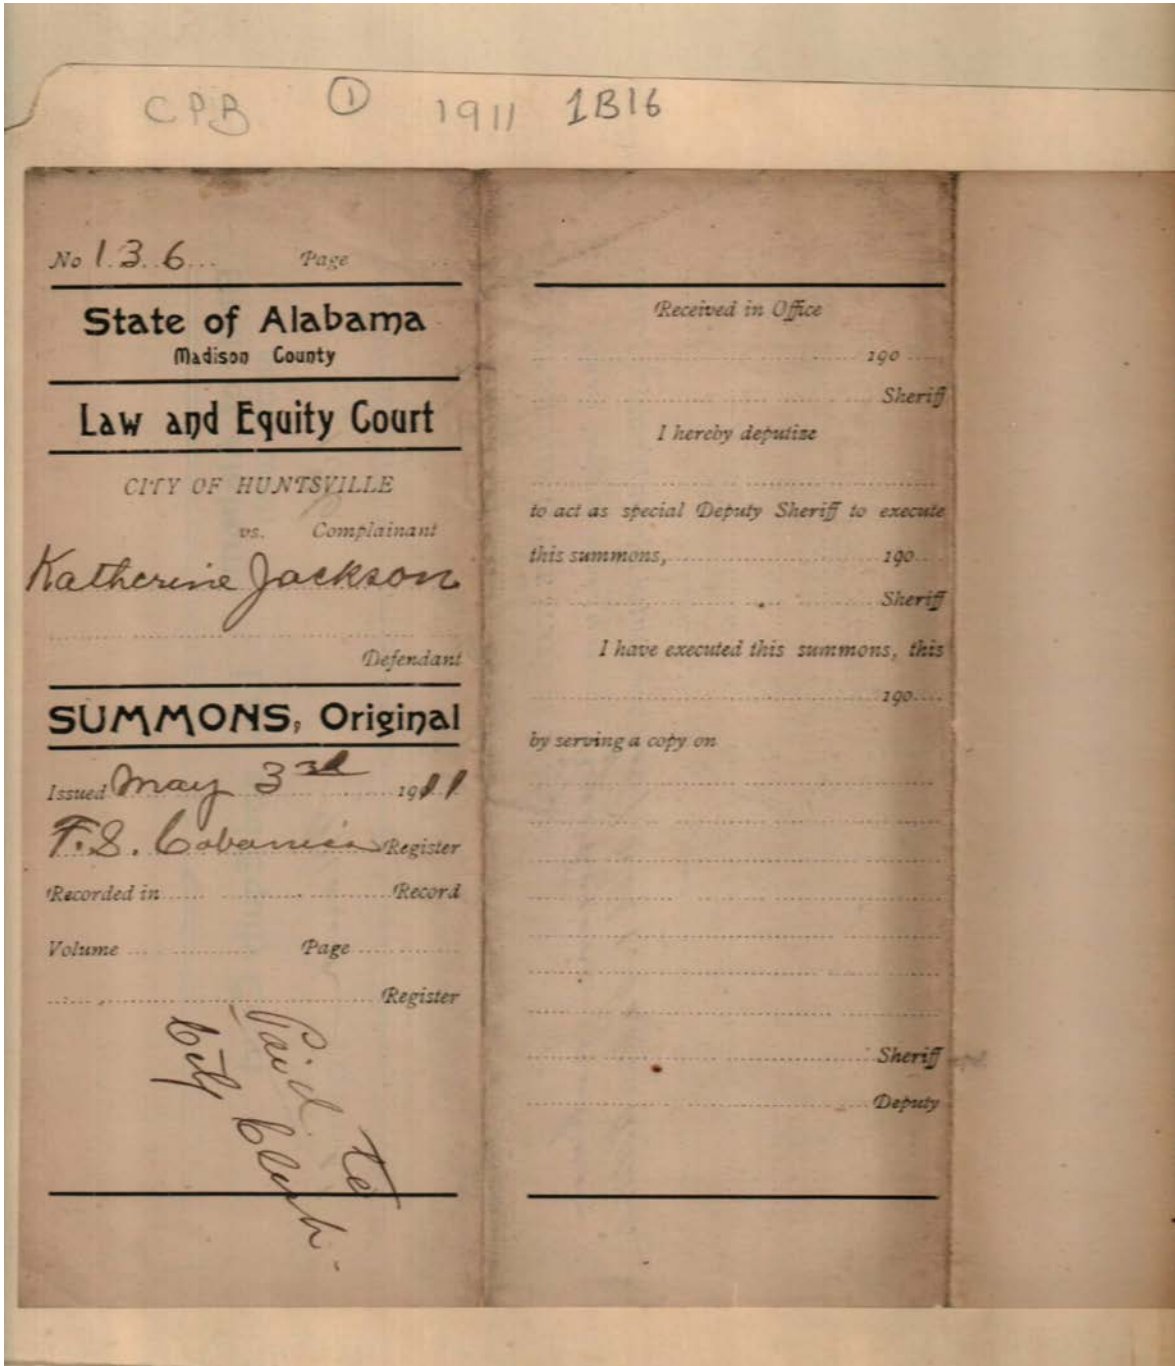 CPB ① 1911 1B16
No 136 Page
State of Alabama
Madison County
Law and Equity Court
CITY OF HUNTSVILLE
vs. Complainant
Katherine Jackson
Defendant
SUMMONS, Original
Issued May 3rd 1911
F.S. Cabaniss Register
Recorded in Record
Volume Page
Register
Paid to
City Clerk.
Received in Office
190
Sheriff
I hereby deputize
to act as special Deputy Sheriff to execute
this summons, 190
Sheriff
I have executed this summons, this
190
by serving a copy on
Sheriff
Deputy